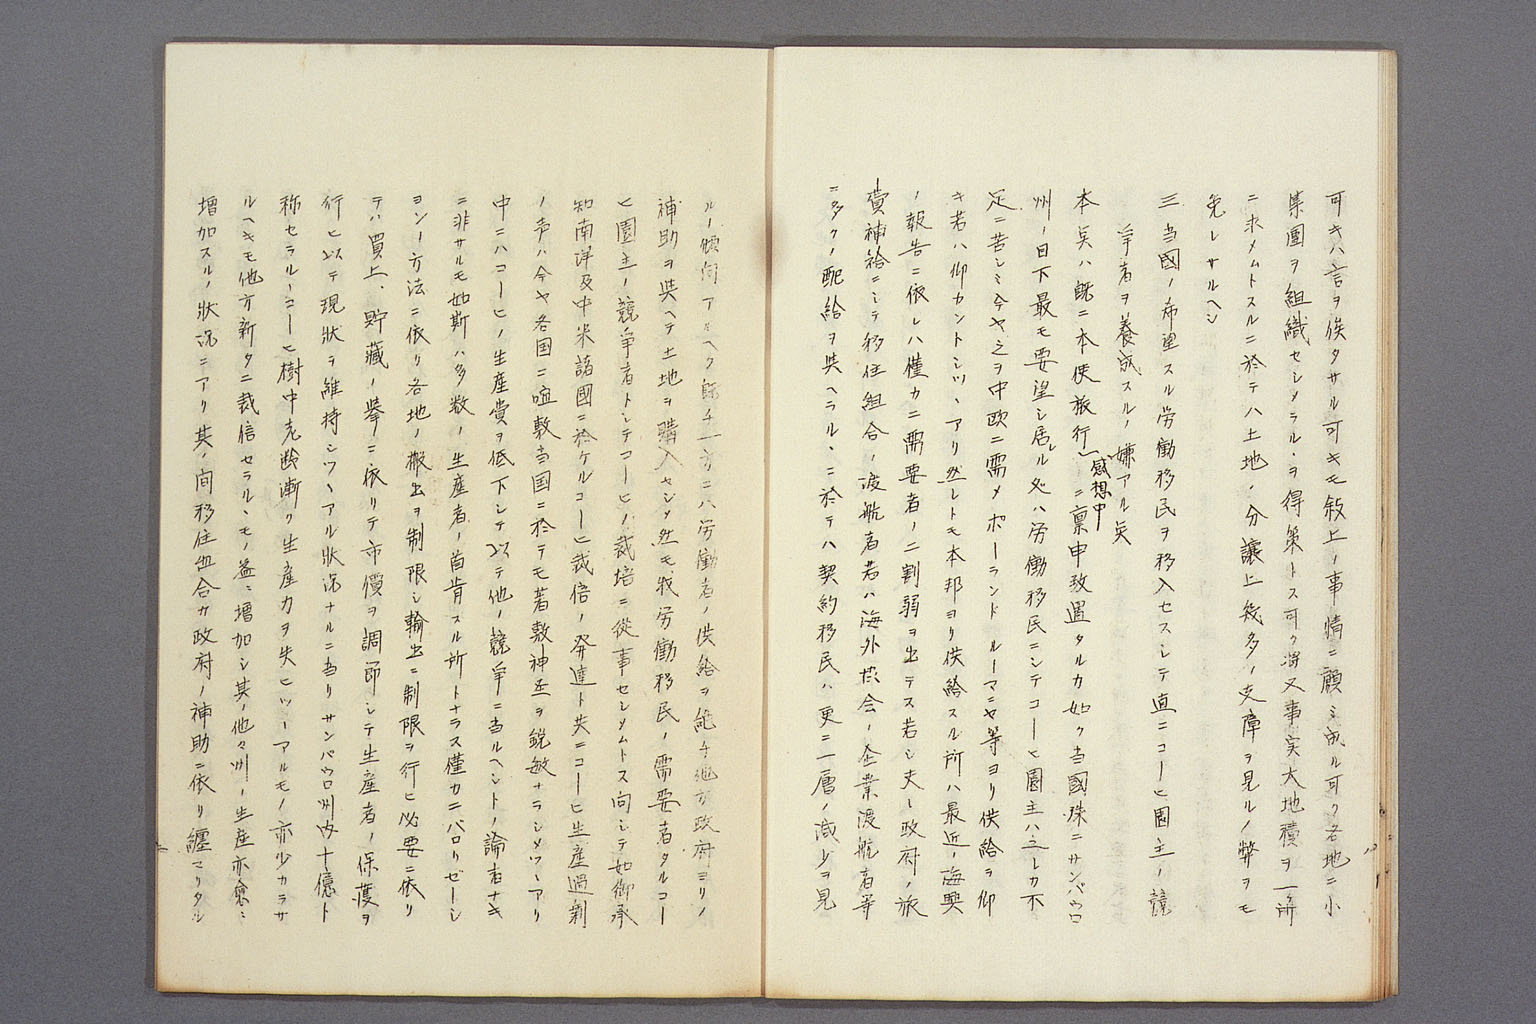 可キハ言ヲ俟タサル可キモ敍上ノ事情ニ顧ミ成ル可ク各地ニ小
集團ヲ組織セシメラルヽヲ得策トス可ク将又事実大地積ヲ一ケ所
ニ求メムトスルニ於テハ土地ノ分譲上幾多ノ支障ヲ見ルノ弊ヲモ
免レサルヘシ
三 当國ノ希望スル労働移民ヲ移入セスシテ直ニコーヒ園主ノ競
争者ヲ養成スルノ嫌アル矣
本矣ハ既ニ本使旅行「感想中」ニ禀申致置タルカ如ク当國殊ニサンパウロ
州ノ目下最モ要望シ居レル処ハ労働移民ニシテコーヒ園主ハ之レカ不
足ニ苦シミ今ヤ之ヲ中欧ニ需メポーランド ルーマニヤ等ヨリ供給ヲ仰
キ若ハ仰カントシツヽアリ然レトモ本邦ヨリ供給スル所ハ最近ノ海興
ノ報告ニ依レハ僅カニ需要者ノ二割弱ヲ出テス若シ夫レ政府ノ旅
費補給ニシテ移住組合ノ渡航者若ハ海外協会ノ企業渡航者等
ニ多クノ配給ヲ與ヘラルヽニ於テハ契約移民ハ更ニ一層ノ減少ヲ見
ルノ傾向アルヘク即チ一方ニハ労働者ノ供給ヲ絶チ他方政府ヨリノ
補助ヲ與ヘテ土地ヲ購入セシメ然モ我労働移民ノ需要者タルコー
ヒ園主ノ競争者トシテコーヒノ栽培ニ從事セシメムトス向シテ如御承
知南洋及中米諸國ニ於ケルコーヒ栽倍ノ発達ト共ニコーヒ生産過剰
ノ声ハ今ヤ各国ニ喧敷当国ニ於テモ著敷神至ヲ鋭敏ナラシメツヽアリ
中ニハコーヒノ生産費ヲ低下シテ以テ他ノ競争ニ当ルヘシトノ論者ナキ
ニ非サルモ如斯ハ多数ノ生産者ノ首肯スル所トナラス僅カニバロリゼーシ
ヨンノ方法ニ依リ各地ノ搬出ヲ制限シ輸出ニ制限ヲ行ヒ必要ニ依リ
テハ買上、貯藏ノ挙ニ依リテ市價ヲ調節シテ生産者ノ保護ヲ
行ヒ以テ現狀ヲ維持シツヽアル狀況ナルニ当リサンパウロ州内十億ト
称セラルヽコーヒ樹中老齢漸ク生産力ヲ失ヒツヽアルモノ亦少カラサ
ルヘキモ他方新タニ栽倍セラルヽモノ益々増加シ其ノ他々州ノ生産亦愈々
増加スルノ狀況ニアリ其ノ間移住組合カ政府ノ補助ニ依リ纏マリタル